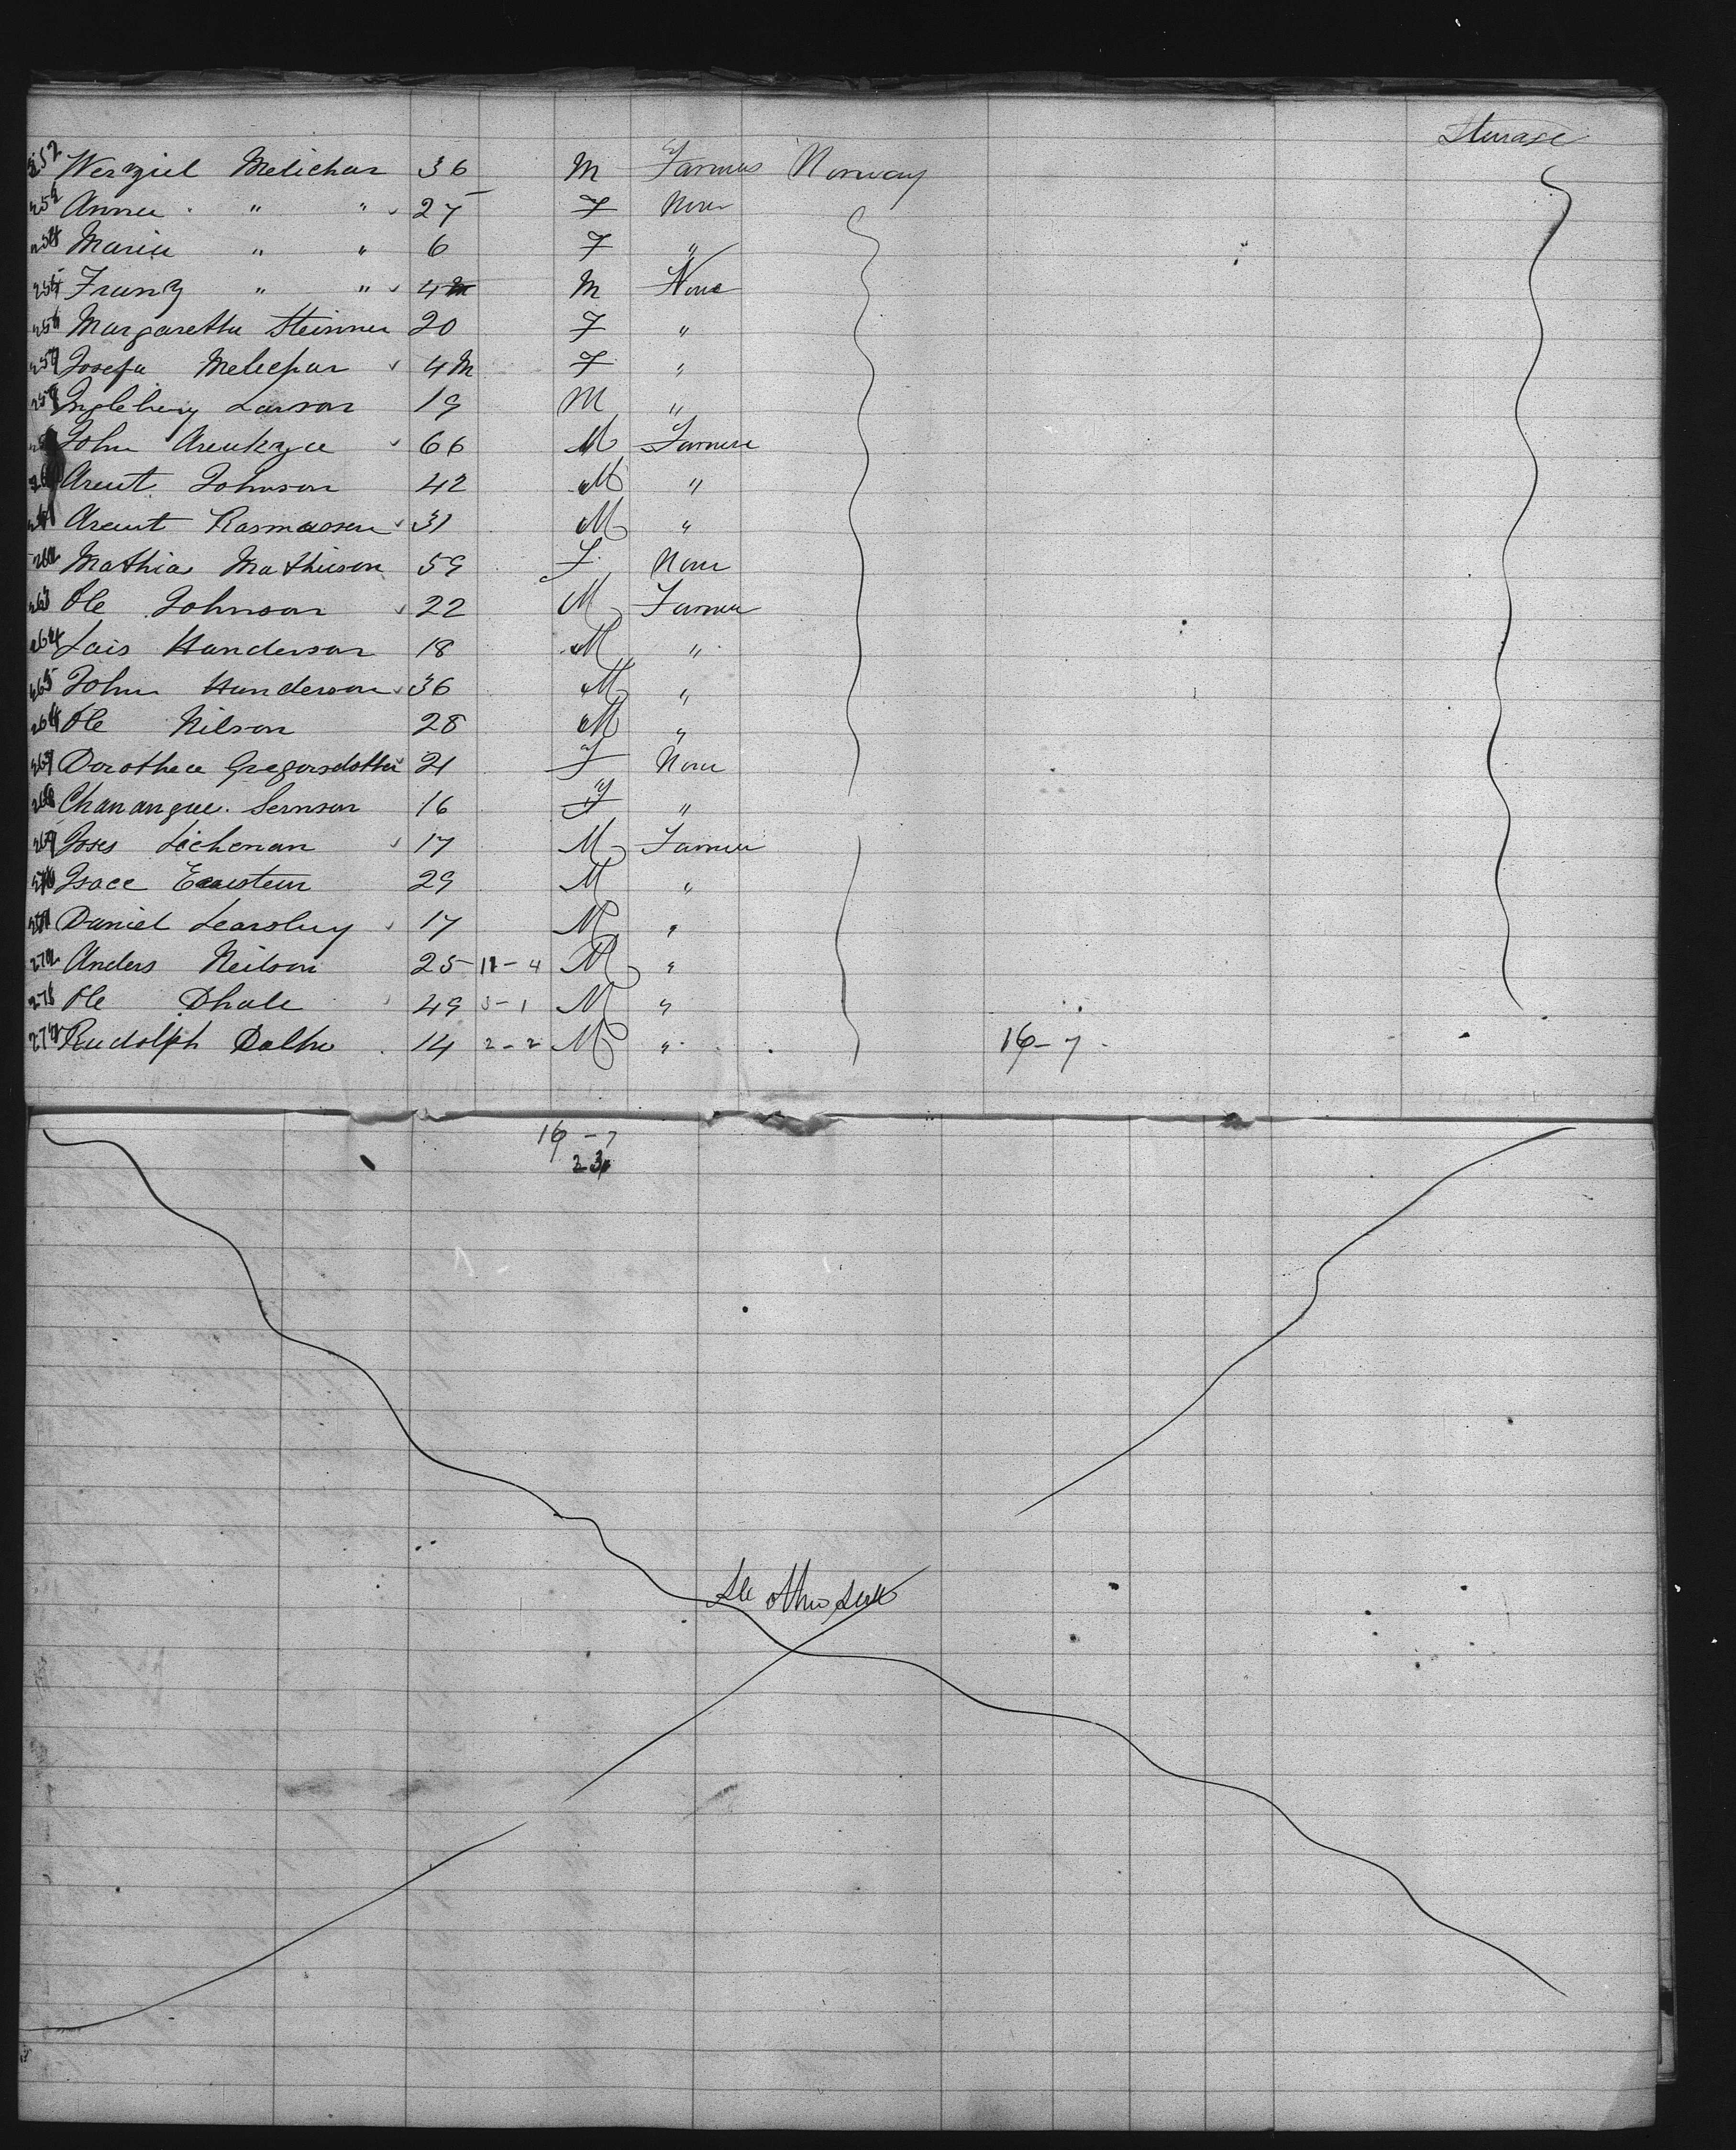 Sterrage
252 Werziel Melichar 36 M Farmer Norway
253 Anna " " 27 F None
254 Maria " " 6 F "
255 Franz " " 4 M None
256 Margaretha Steinner 20 F "
257 Josefa Melichar 4M F "
258 Ingleberg Larson 19 M "
John 66 M Farmer
260 Arent Johnson 42 M "
261 Arent Rasmussen 31 M "
262 Mathia Mathieson 59 F None
263 Ole Johnson 22 M Farmer
264 Lais Handerson 18 M "
265 John Handerson 36 M "
266 Ole Nilson 28 M "
267 Dorothea Gregorsdotter 21 F None
268 Sernson 16 F "
269 Joses Lichenan 17 M Farmer
270 Isace 29 M "
271 Daniel 17 M "
272 Anders Neilson 25 11-4 M "
273 Ole Dhale 49 3-1 M "
274 Rudolph Dalho 14 2-2 M " 16-7
16-7
23
See other side